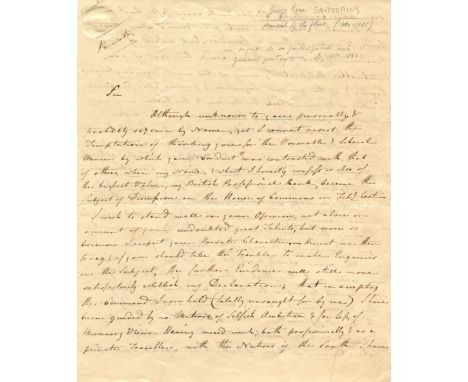 Sir George Rose SARTORIUS
Admiral of the fleet (1790-1885)
Private
Sir
Although unknown to you personally &
probably so even by Name, yet I cannot resist the
Temptation of thanking you for the Honourable & Liberal
Manner by which your Conduct was contrasted with that
of others, when my Name, & what I honestly confess is also of
the highest Value, my British Professional Rank, became the
subject of Discussion in the House of Commons in Feby last.
I wish to stand well in your Opinion, not alone on
account of your undoubted great Talents, but more so
because I respect your Private Character - Permit me then
to say, if you should take the Trouble to make Enquiries
on this Subject, the further Evidence will still more
satisfactorily establish my Declaration, that in accepting
the Command I now hold (totally unsought for by me) I have
been guided by no Motives of Selfish Ambition & far less of
Mercenary Views. Having mixed much, both professionally & as a
private Traveller, with the Natives of the South I have